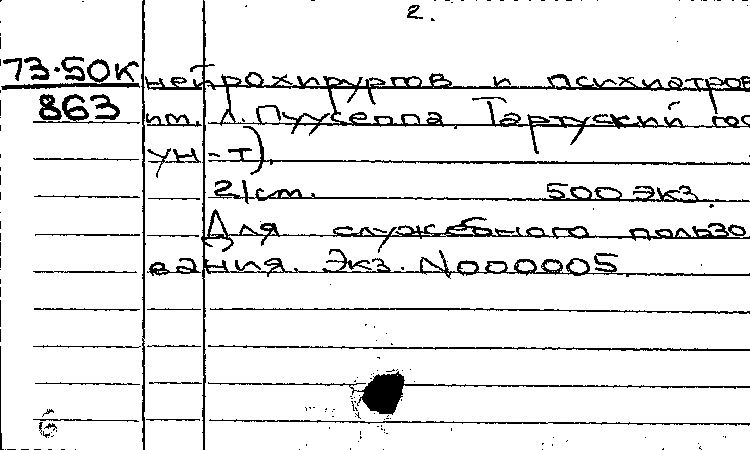 2.
73.50К нейрохирургов и психиатров
863 им. Л. Пуусеппа. Тартуский гос
ун-т).
21 cm. 500 экз.
Для служебного пользо
вания. Экз. N000005
6